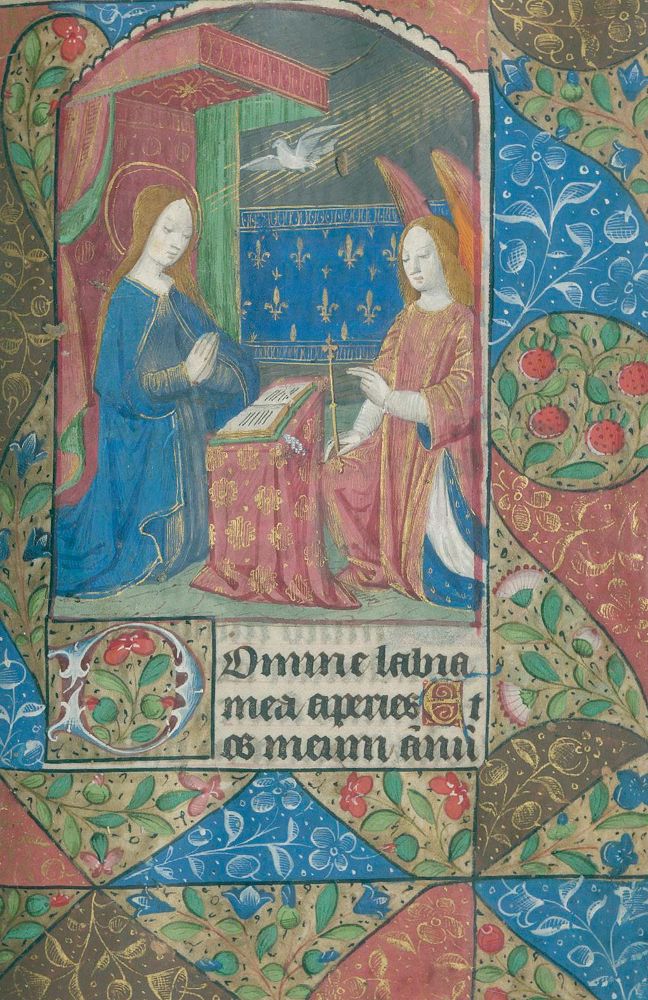 Domine labia
mea aperies Et
os meum annū